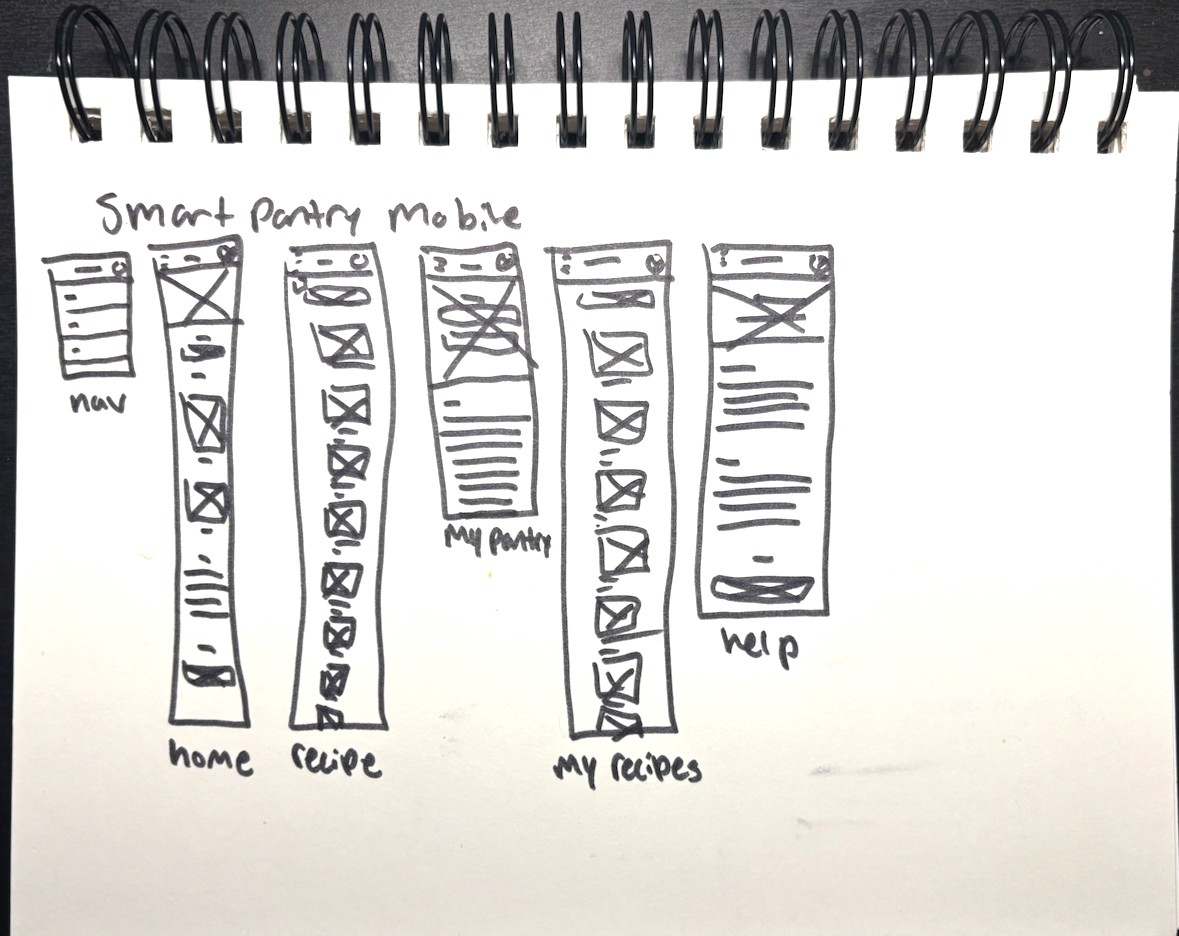 Smart Pantry Mobile
nav
My pantry
help
home
recipe
My recipes